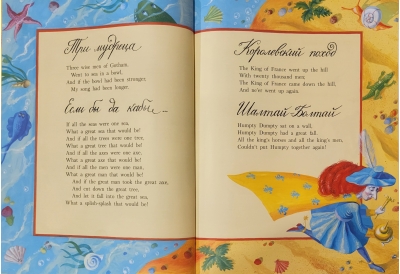 Три мудреца
Three wise men of Gotham,
Went to sea in a bowl,
And if the bowl had been stronger,
My song had been longer.
Если бы да кабы...
If all the seas were one sea,
What a great sea that would be!
And if all the trees were one tree,
What a great tree that would be!
And if all the axes were one axe,
What a great axe that would be!
And if all the men were one man,
What a great man that would be!
And if the great man took the great axe,
And cut down the great tree,
And let it fall into the great sea,
What a splish-splash that would be!
Королевский поход
The King of France went up the hill
With twenty thousand men;
The King of France came down the hill,
And ne'er went up again.
Шалтай-Болтай
Humpty Dumpty sat on a wall,
Humpty Dumpty had a great fall.
All the king's horses and all the king's men,
Couldn't put Humpty together again!